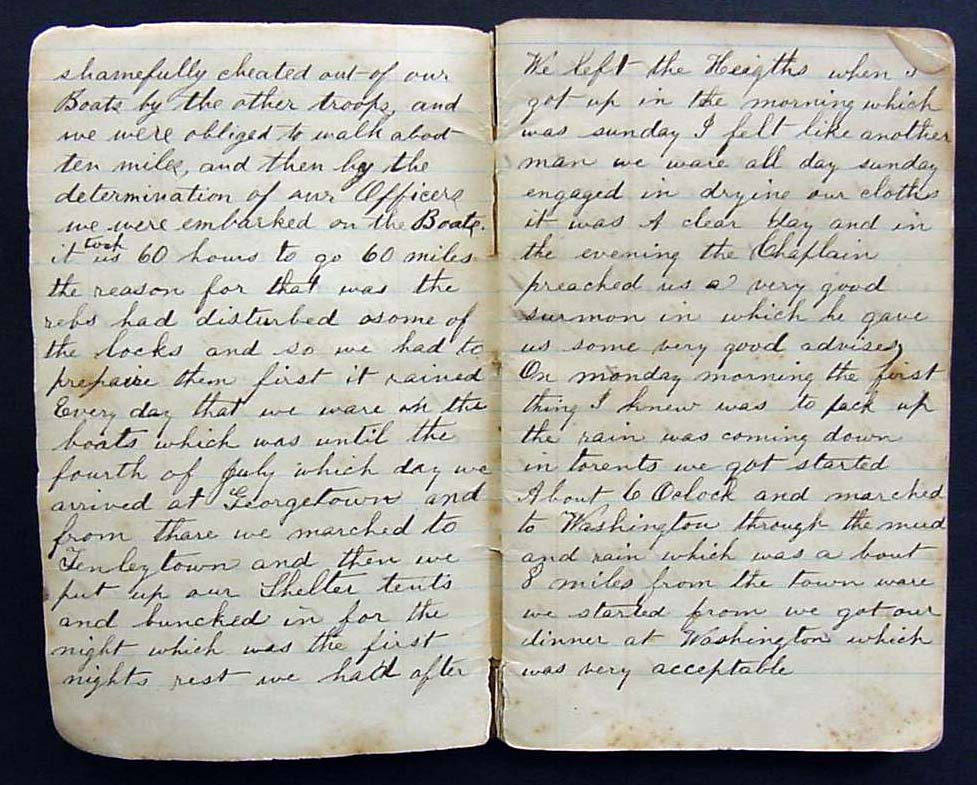 shamefully cheated out of our
Boats by the other troops, and
we were obliged to walk about
ten miles, and then by the
determination of our Officers
we were embarked on the Boats.
it took us 60 hours to go 60 miles
the reason for that was the
rebs had disturbed some of
the locks and so we had to
prepaire them first it rained
Every day that we ware on the
boats which was until the
fourth of July which day we
arrived at Georgetown and
from thare we marched to
Tenleytown and then we
put up our Shelter tents
and buncked in for the
night which was the first
nights rest we had after
We left the Heigths when I
got up in the morning which
was sunday I felt like another
man we ware all day sunday
engaged in drying our cloths
it was A clear day and in
the evening the Chaplain
preached us a very good
surmon in which he gave
us some very good advises,
On monday morning the first
thing I knew was to pack up
the rain was coming down
in torents we got started
About 6 Oclock and marched
to Washington through the mud
and rain which was a bout
8 miles from the town ware
we started from we got our
dinner at Washington which
was very acceptable